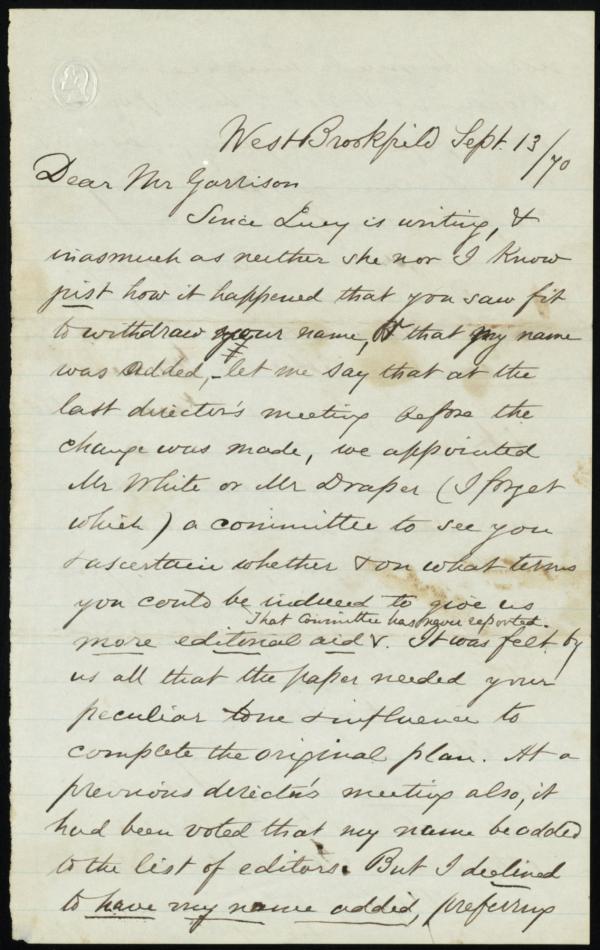 West Brookfield Sept. 13/70
Dear Mr Garrison
Since Lucy is writing, &
inasmuch as neither she nor I know
just how it happened that you saw fit
to withdraw your name, & that my name
was added, - let me say that at the
last director's meeting before the
change was made, we appointed
Mr White or Mr Draper (I forget
which) a committee to see you
& ascertain whether & on what terms
you could be induced to give us
That Committee has never reported.
more editorial aid &. It was felt by
us all that the paper needed your
peculiar tone & influence to
complete the original plan. At a
previous director's meeting also, it
had been voted that my name be added
to the list of editors. But I declined
to have my name added, preferring